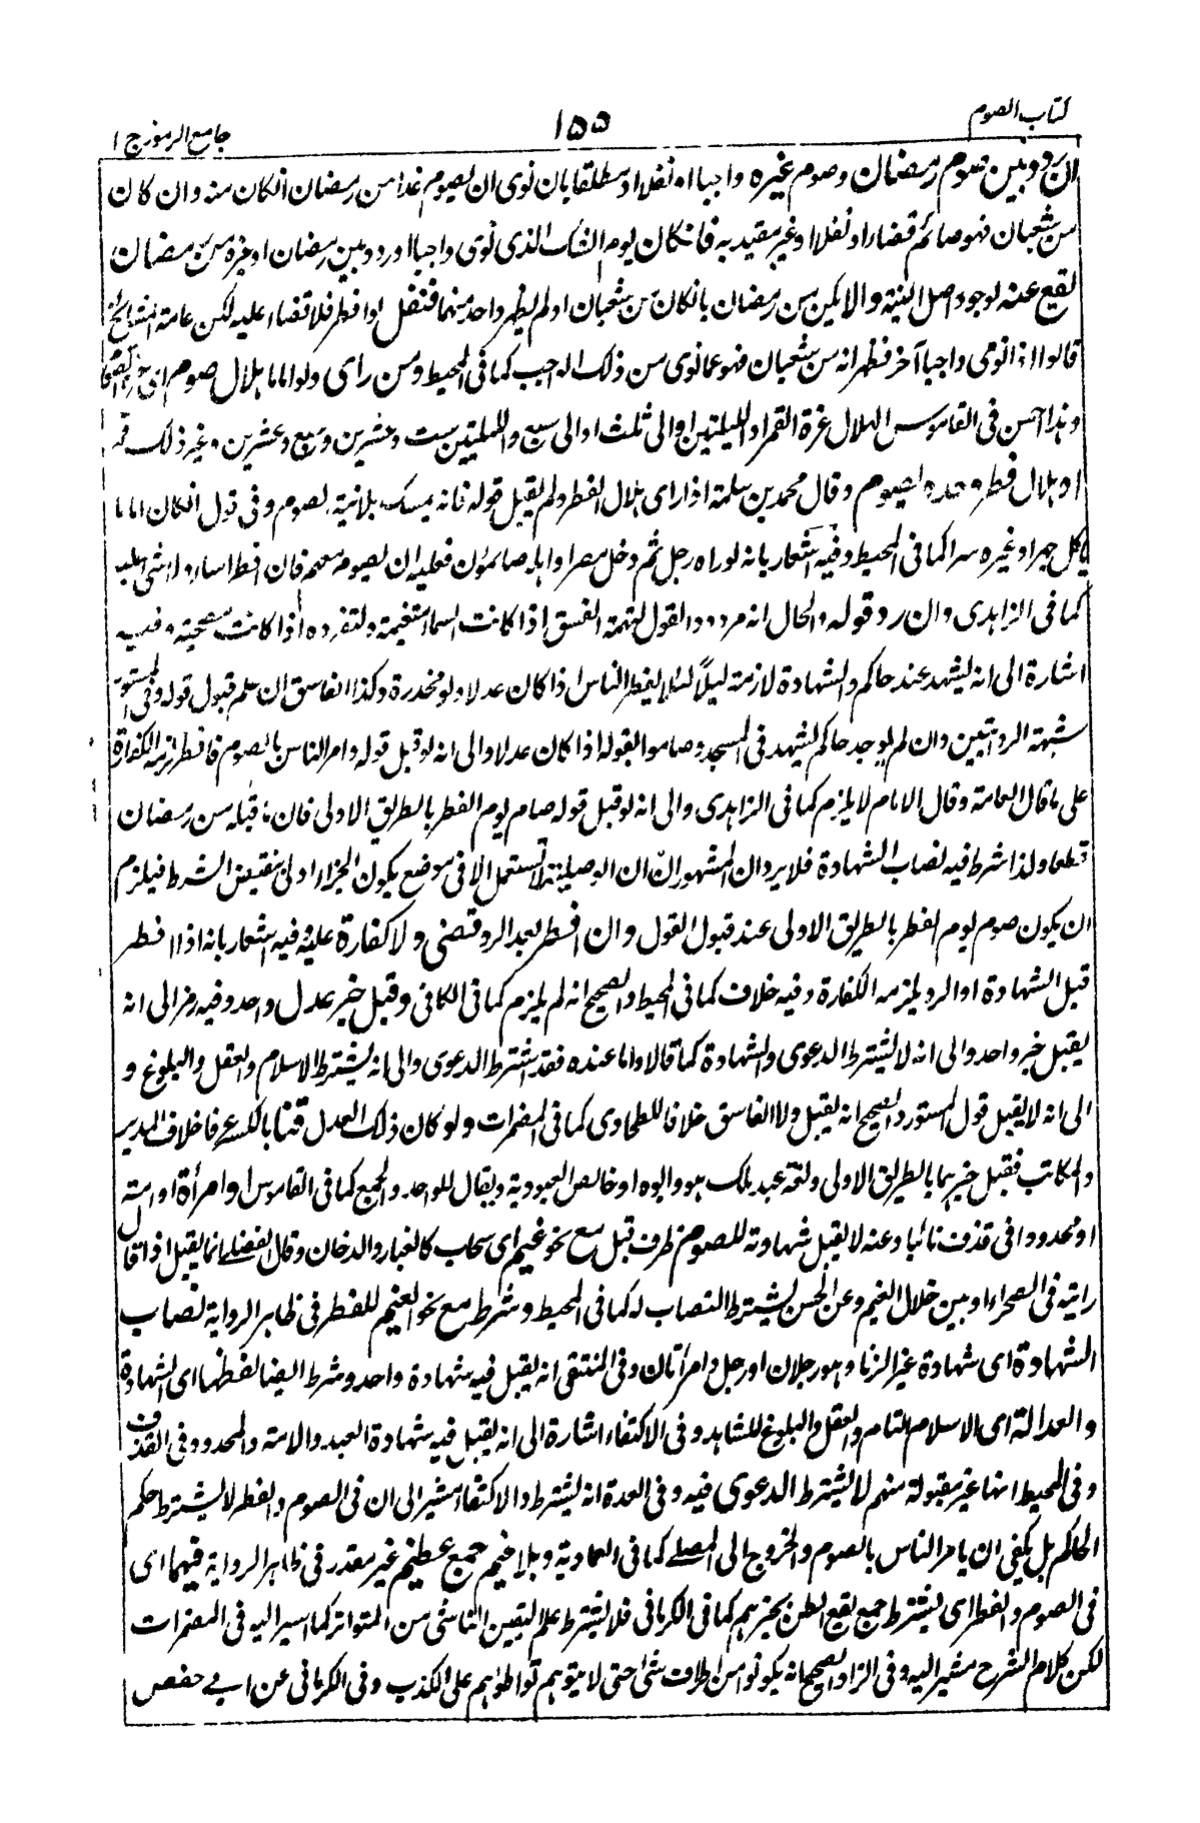 كتاب الصوم
١٥٥
جامع الرموز ج ١
ان ردد بين صوم رمضان وصوم غيره واجبا او نفلا او مطلقا بان نوى ان يصوم غدا من رمضان انكان منه وان كان
من شعبان فهو صائم قضاء او نفلا او غير مقيد به فانكان يوم الشك الذى نوى واجبا او ردد بين رمضان او غيره من رمضان
يقع عنه لوجود اصل النية والا يكن من رمضان بانكان من شعبان او لم يظهر واحد منهما فتنفل لو افطر فلا قضاء عليه لكن عامة المشايخ
قالوا اذا نوى واجبا آخر فظهر انه من شعبان فهو عما نوى من ذلك الواجب كما فى المحيط ومن راى ولو اماما هلال صوم اى
وهذا احسن فى القاموس الهلال غرة القمر او الليلتين او الى ثلث او الى سبع والليلتين ست وعشرين وسبع وعشرين وغير ذلك قمر
او هلال فطر وحده يصوم وقال محمد بن سلمة اذا راى هلال الفطر ولم يقبل قوله فانه يمسك بلا نية الصوم وفى قول انكان اماما
ياكل جهرا وغيره سرا كما فى المحيط وفيه اشعار بانه لو راه رجل ثم دخل مصرا واهله صائمون فعليه ان يصوم معهم فان افطر اساء ولا شئ عليه
كما فى الزاهدى وان رد قوله والحال انه مردود القول لتهمة الفسق اذا كانت السماء متغيمة ولتفرده اذا كانت مصحية وفيه
اشارة الى انه يشهد عند حاكم والشهادة لازمة ليلاً لئلا يفطر الناس اذا كان عدلا ولو مخدرة وكذا الفاسق ان علم قبول قوله وفى المستور
شبهة الروايتين وان لم يوجد حاكم يشهد فى المسجد وصاموا بقوله اذا كان عدلا والى انه لو قبل قوله وامر الناس بالصوم فافطر لزمه الكفارة
على ما قال العامة وقال الامام لا يلزم كما فى الزاهدى والى انه لو قبل قوله صام يوم الفطر بالطريق الاولى فان ما قبله من رمضان
قطعا ولذا شرط فيه نصاب الشهادة فلا يرد ان المشهور ان ان الوصيلية لا تستعمل الا فى موضع يكون الجزاء اولى بنقيض الشرط فيلزم
ان يكون صوم يوم الفطر بالطريق الاولى عند قبول القول وان افطر بعد الرد قضى ولا كفارة عليه فيه اشعار بانه اذا افطر
قبل الشهادة او الرد يلزمه الكفارة وفيه خلاف كما فى المحيط والصحيح انه لم يلزم كما فى الكافى وقبل خبر عدل واحد وفيه رمز الى انه
يقبل خبر واحد والى انه لا يشترط الدعوى والشهادة كما قالا واما عنده فقد اشترط الدعوى والى انه يشترط الاسلام والعقل والبلوغ و
الى انه لا يقبل قول المستور والصحيح انه يقبل ولا الفاسق خلافا للطحاوى كما فى المضمرات ولو كان ذلك العدل قنا بالكسر عرفا خلاف المدبر
والمكاتب فقبل خبرهما بالطريق الاولى ولغة عبد ملك هو وابوه او خالص العبودية ويقال للواحد والجمع كما فى القاموس او امرأة او امته
او محدودا فى قذف تائبا وعنه لا يقبل شهادته للصوم ظرف قبل مع نحو غيم اى سحاب كالغبار والدخان وقال الفضلى انما يقبل اذا قال
رايته فى الصحراء او بين خلال الغيم وعن الحسن يشترط النصاب له كما فى المحيط وشرط مع نحو الغيم للفطر فى ظاهر الرواية نصاب
الشهادة اى شهادة غير الزنا وهو رجلان او رجل وامرأتان وفى المنتقى انه يقبل فيه شهادة واحد وشرط ايضا لفظها اى الشهادة
والعدالة اى الاسلام التام والعقل والبلوغ للشاهد وفى الاكتفاء اشارة الى انه يقبل فيه شهادة العبد والامة والمحدود فى القذف
وفى المحيط انها غير مقبولة منهم لا يشترط الدعوى فيه وفى العدة انه يشترط والاكتفاء مشير الى ان فى الصوم والفطر لا يشترط حكم
الحاكم بل يكفى ان يامر الناس بالصوم والخروج الى المصلى كما فى العمادية وبلا غيم جمع عظيم غير مقدر فى ظاهر الرواية فيهما اى
فى الصوم والفطر اى يشترط جمع يقع الظن بخبرهم كما فى الكرمانى فلا يشترط علم اليقين الناشئ من المتواتر كما اسير اليه فى المضمرات
لكن كلام الشرح مشير اليه وفى الزاد الصحيح انه يكونوا من اطراف شتى حتى لا يتوهم تواطؤهم على الكذب وفى الكرمانى عن ابى حفص